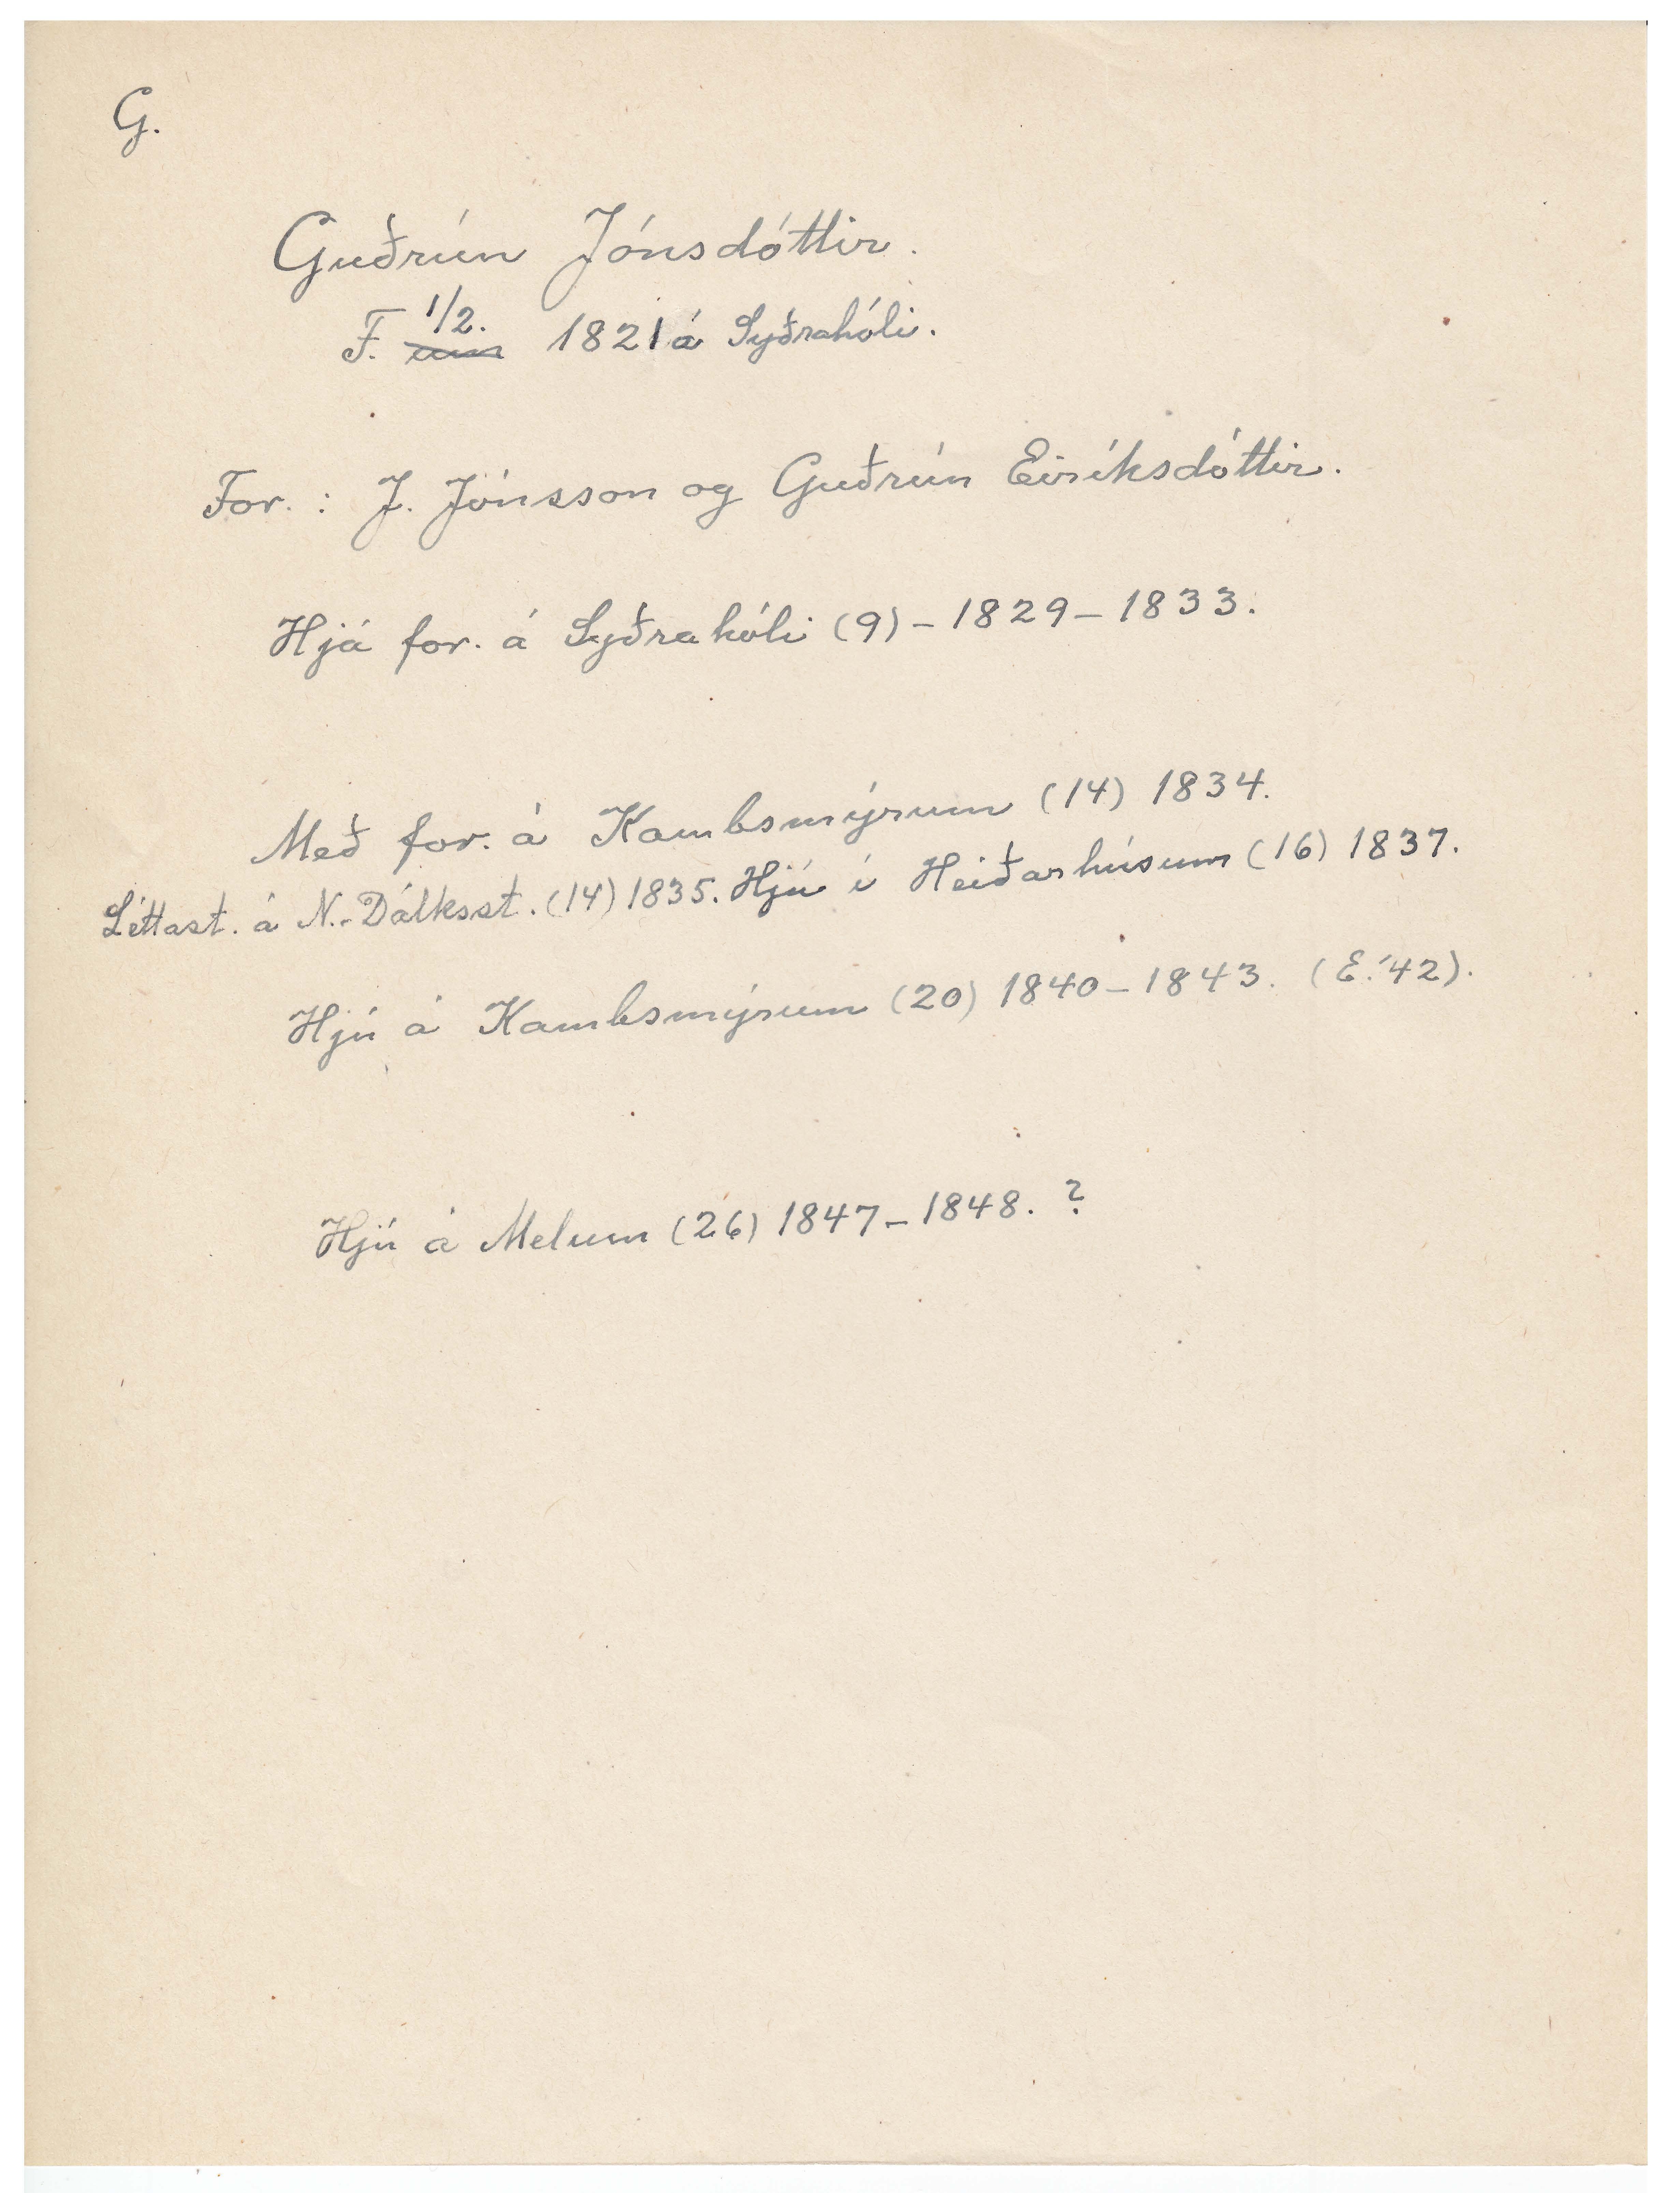 G.
Guðrún Jónsdóttir.
F. 1/2. 1821 á Syðrahóli.
For.: J. Jónsson og Guðrún Eiríksdóttir.
Hjá for. á Syðrahóli (9) - 1829 - 1833.
Með for. á Kambsmýrum (14) 1834.
Léttast. á N.-Dálksst. (14) 1835. Hjú í Heiðarhúsum (16) 1837.
Hjú á Kambsmýrum (20) 1840 - 1843. (E.'42).
Hjú á Melum (26) 1847 - 1848. ?